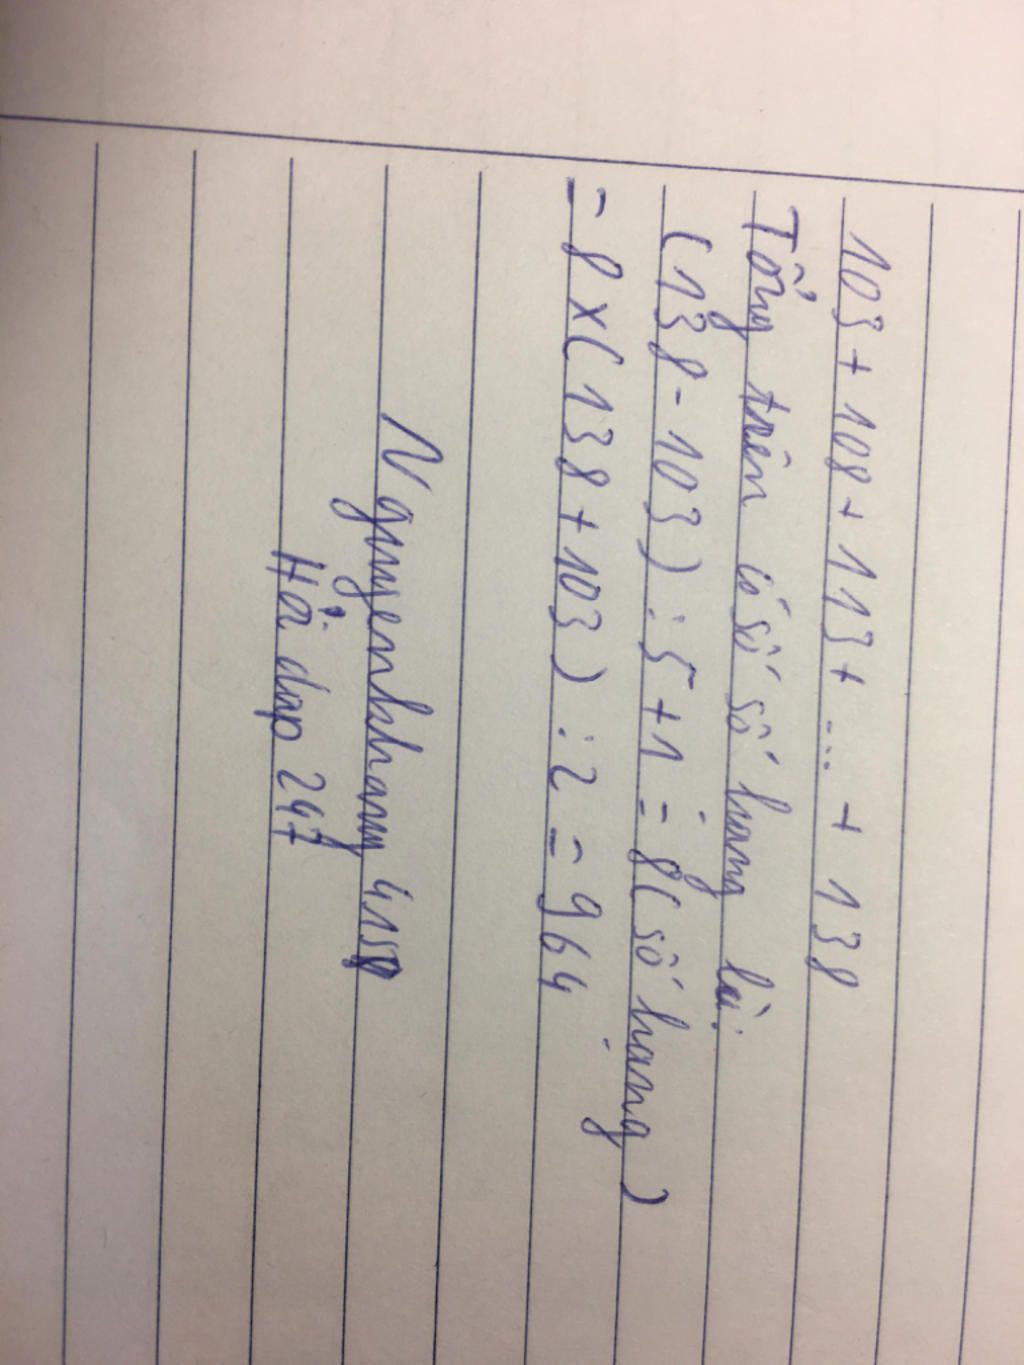 103 + 108 + 113 + ... + 138
Tổng trên có số số hạng là:
(138 - 103) : 5 + 1 = 8 (số hạng)
= 8 x ( 138 + 103 ) : 2 = 964
Nguyenkhang 4158
Hỏi dap 247